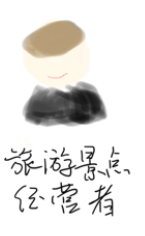 旅游景点
经营者